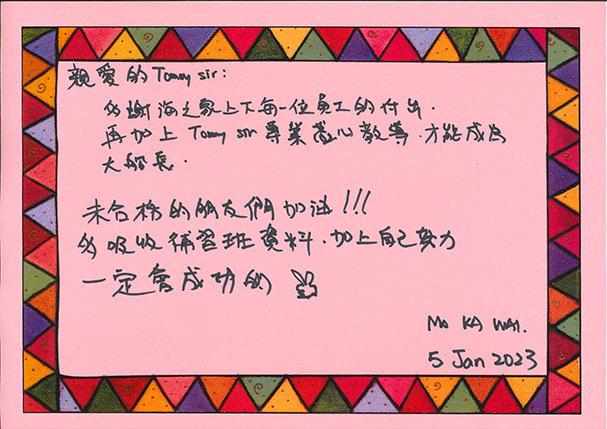 親愛的 Tommy sir:
多謝海之家上下每一位員工的付出.
再加上 Tommy sir 專業悉心教導.才能成為
大船長.
未合格的朋友們加油!!!
多吸收補習班資料.加上自己努力
一定會成功的
Mo KA WAI.
5 Jan 2023